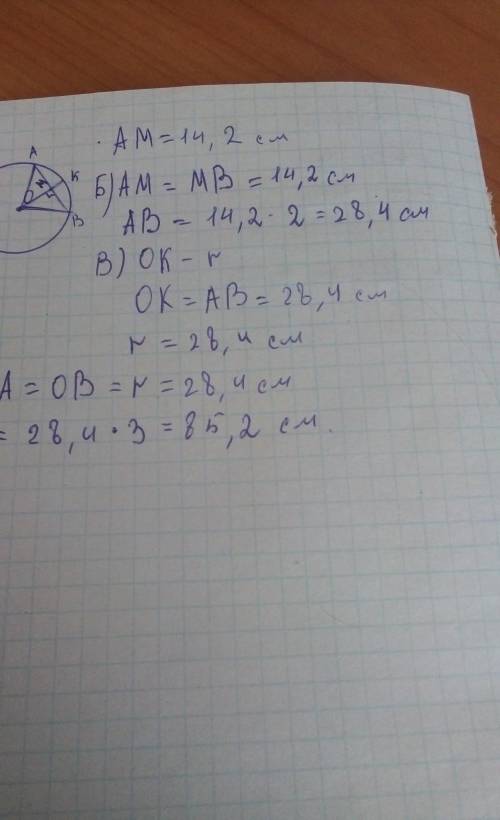 A
K
M
O
B
· AM = 14,2 см
Б) AM = MB = 14,2 см
AB = 14,2 · 2 = 28,4 см
В) OK – r
OK = AB = 28,4 см
r = 28,4 см
A = OB = r = 28,4 см
= 28,4 · 3 = 85,2 см.